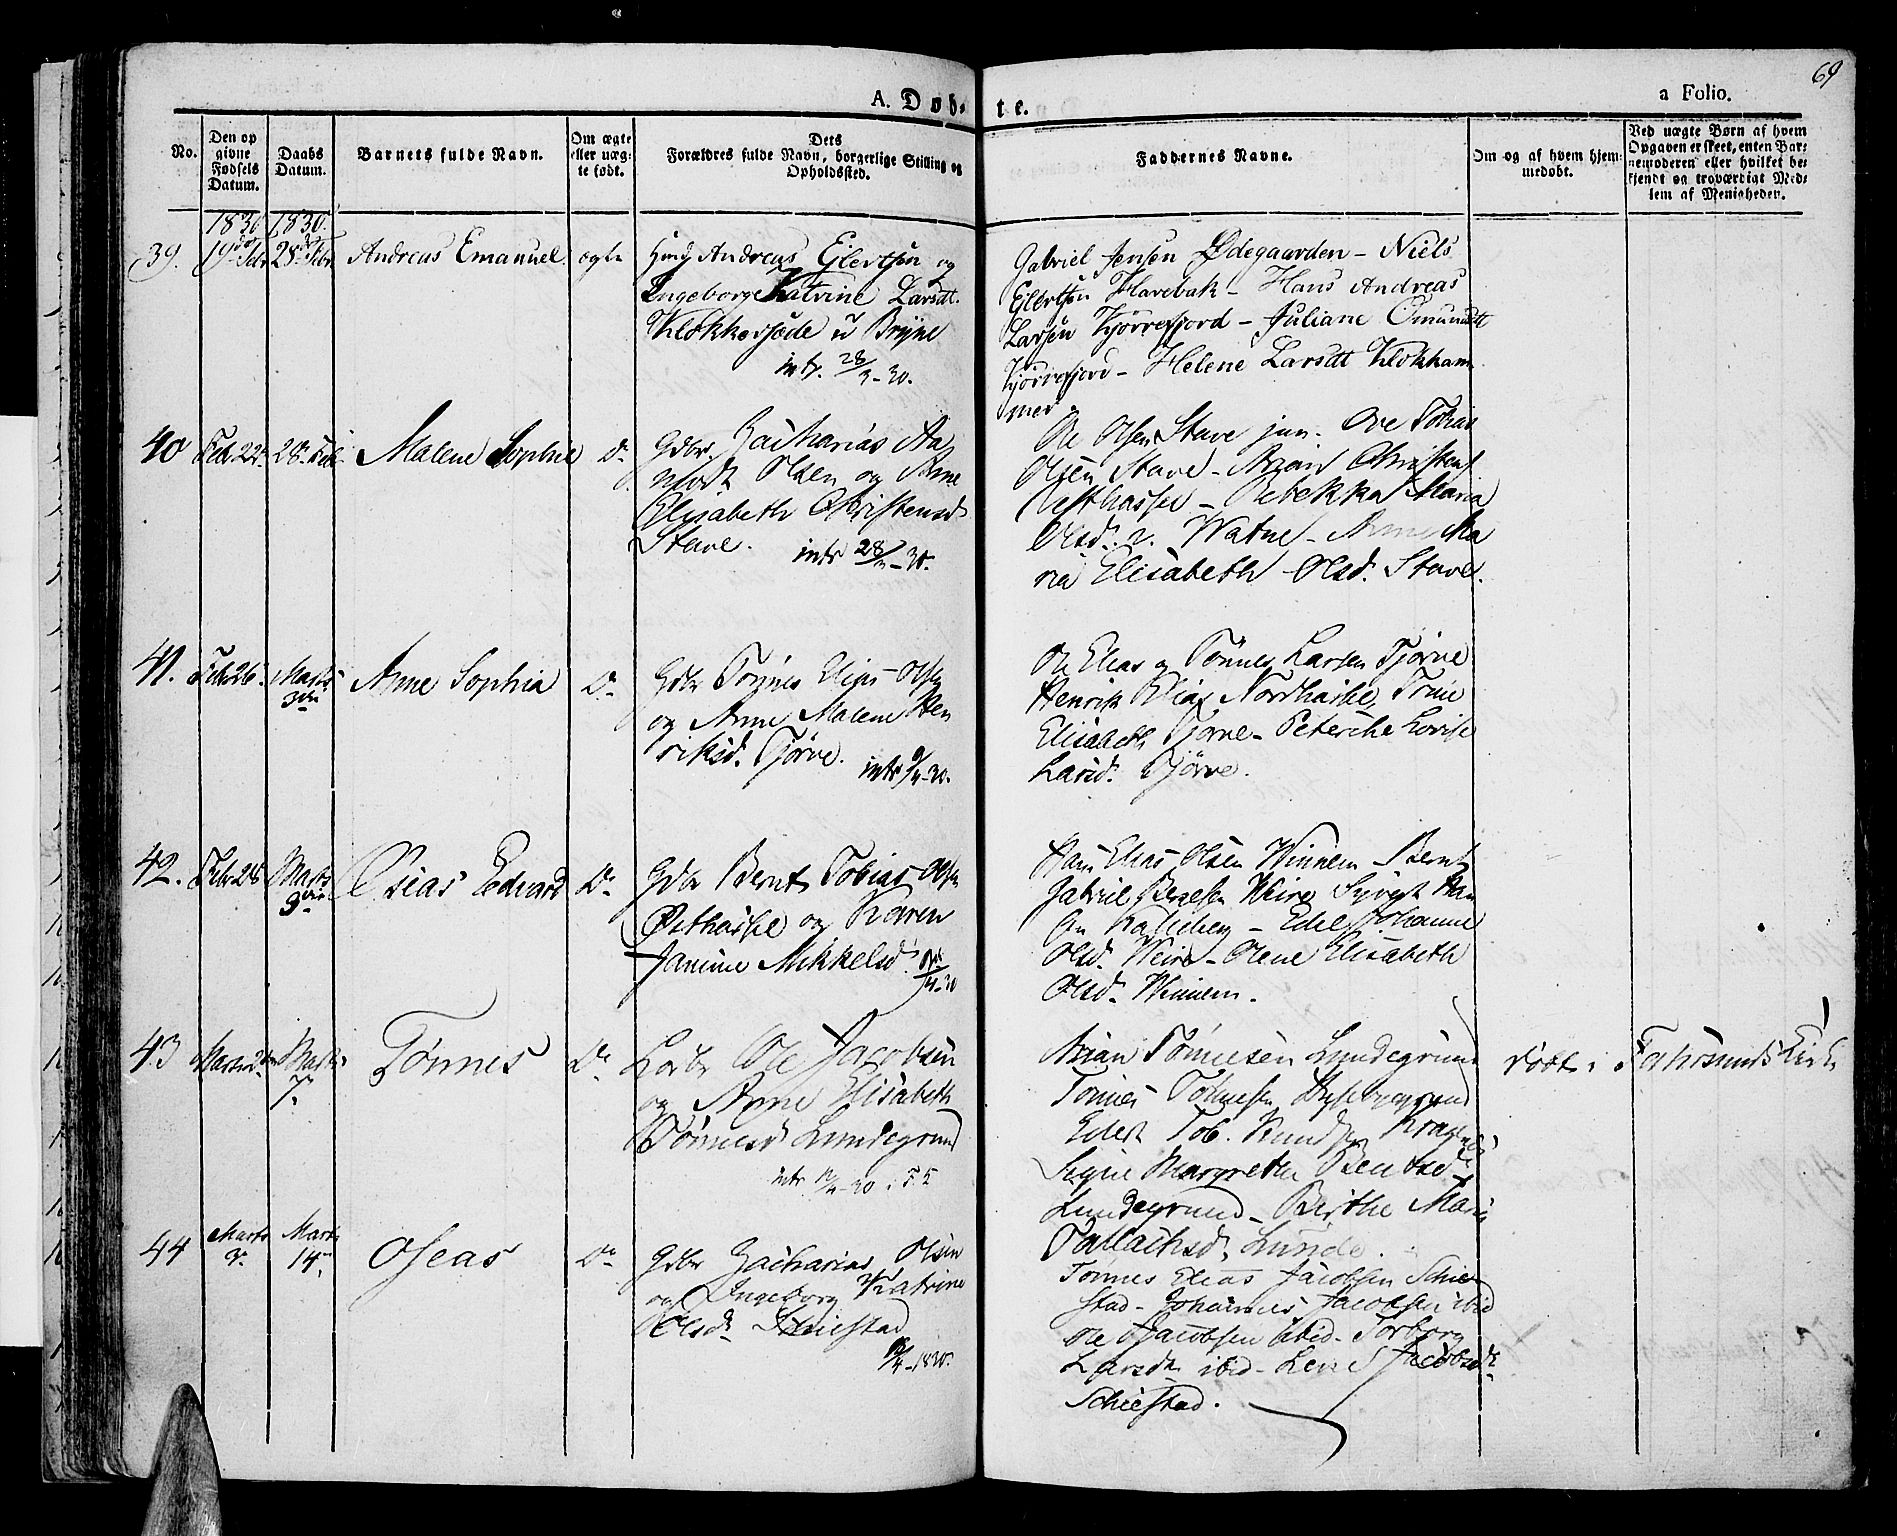 69
A. Døb-
te.
a Folio.
No.
Den op
givne
Fødsels
Datum.
Daabs
Datum.
Barnets fulde Navn.
Om ægte
eller uæg-
te født.
Dets
Forældres fulde Navn, borgerlige Stilling og
Opholdssted.
Faddernes Navne.
Om og af hvem hjem-
medøbt.
Ved uægte Børn af hvem
Opgaven er skeet, enten Bar-
nemoderen eller hvilket be-
kjendt og troværdigt Med-
lem af Menigheden.
1830 1830.
39. 19 Febr 28 Febr Andreas Emanuel. ægte
Andreas Eilertsen og
Ingeborg Katrine Larsdt.
Klokkersøde Bryne
intr. 28/3-30.
Gabriel Jensen Ødegaarden - Niels
Eilertsen Havebak - Hans Andreas
Larsen Kjørrefjord - Juliane Omundsdt
Kjørrefjord - Helene Larsdt Klokham
mer
40 Feb 22 28 Feb Malene Sophie Do
Gdbr. Zacharias Aa
nfindt Olsen og Anne
Elisabeth Christensd
Stave. intr 28/3-30.
Ole Olsen Stave jun. Ove Tobias
Olsen Stave - Arian Christens
Vesthassel - Rebekka Maria
Olsd. Watne - Anne Ma
ria Elisabeth Olsd. Stave.
41. Febr 26. Marts 3die Anne Sophia Do
Gdbr Tønnes Elias Olsen
og Anne Malene Hen
riksd. Tjørve. intr 9/4-30.
Ole Elias og Tønnes Larsen Tjørve
Henrik Elias Nordhassel,
Elisabeth Tjørve - Peterche Lovise
Larsd. Tjørve.
42. Febr 28 Marts Osias Edvard Do
Gdbr Bernt Tobias Olsen
Østhassel og Karen
Janine Mikkelsd.
Hans Elias Olsen Winnem Bernt
Gabriel Berntsen Weire Syvert Han
sen Kalleberg - Edel Johanne
Olsd. Weire - Olene Elisabeth
Olsd. Winnem.
43 Marts 2 Marts 7 Tønnes Do
Ole Jacobsen
og Anne Elisabeth
Tønnesd Lundegrund
Arian Tønnesen Lundegrund
Tønnes Tønnesen
Tob. Knudsen
Signe Margrethe Bentsd.
Lundegrund - Birthe Marie
Tallachsd. Lunde.
Døbt i Fahrsunds Kirke
44 Marts 3 Marts 14 Oseas Do
Gdbr Zacharias Olsen
og Ingeborg Katrine
Olsd. Schiestad
/4-1830.
Tønnes Elias Jacobsen Schie
stad - Johannes Jacobsen ibid
Ole Jacobsen ibid - Torborg
Larsdt ibid - Lene S Jacobsdt
Schiestad.